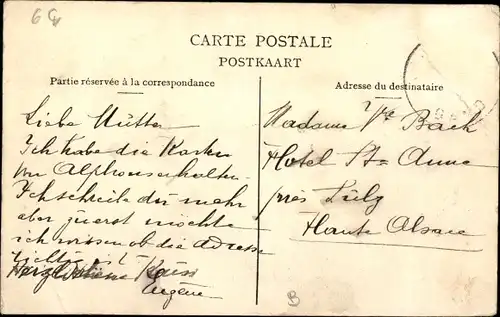 6
CARTE POSTALE
POSTKAART
Partie réservée à la correspondance
Adresse du destinataire
Liebe Mutter
Ich habe die Karten
von Alphons erhalten.
Ich schreibe dir mehr
aber zuerst möchte
ich wissen ob die Adresse
richtig ist
Herzliche Küsse
Eugène
Madame Vve Bach
Hotel Ste Anne
près Sulz
Haute Alsace
B